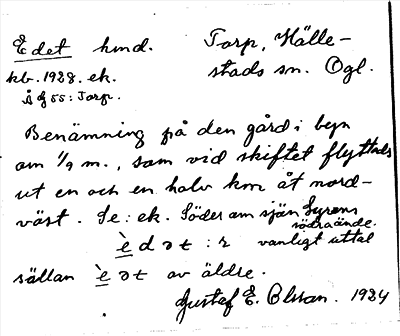 Edet hmd. Torp, Hälle-
kb. 1928. ek. stads sn. Ögl.
Å g 55: Torp.
Benämning på den gård i byn
om 1/9 m., som vid skiftet flyttads
ut en och en halv km åt nord-
väst. Se: ek. Söder om sjön Lyrens
södraände.
è d ə t : 2 vanligt uttal
sällan è ə t av äldre.
Gustaf E. Olsson. 1924